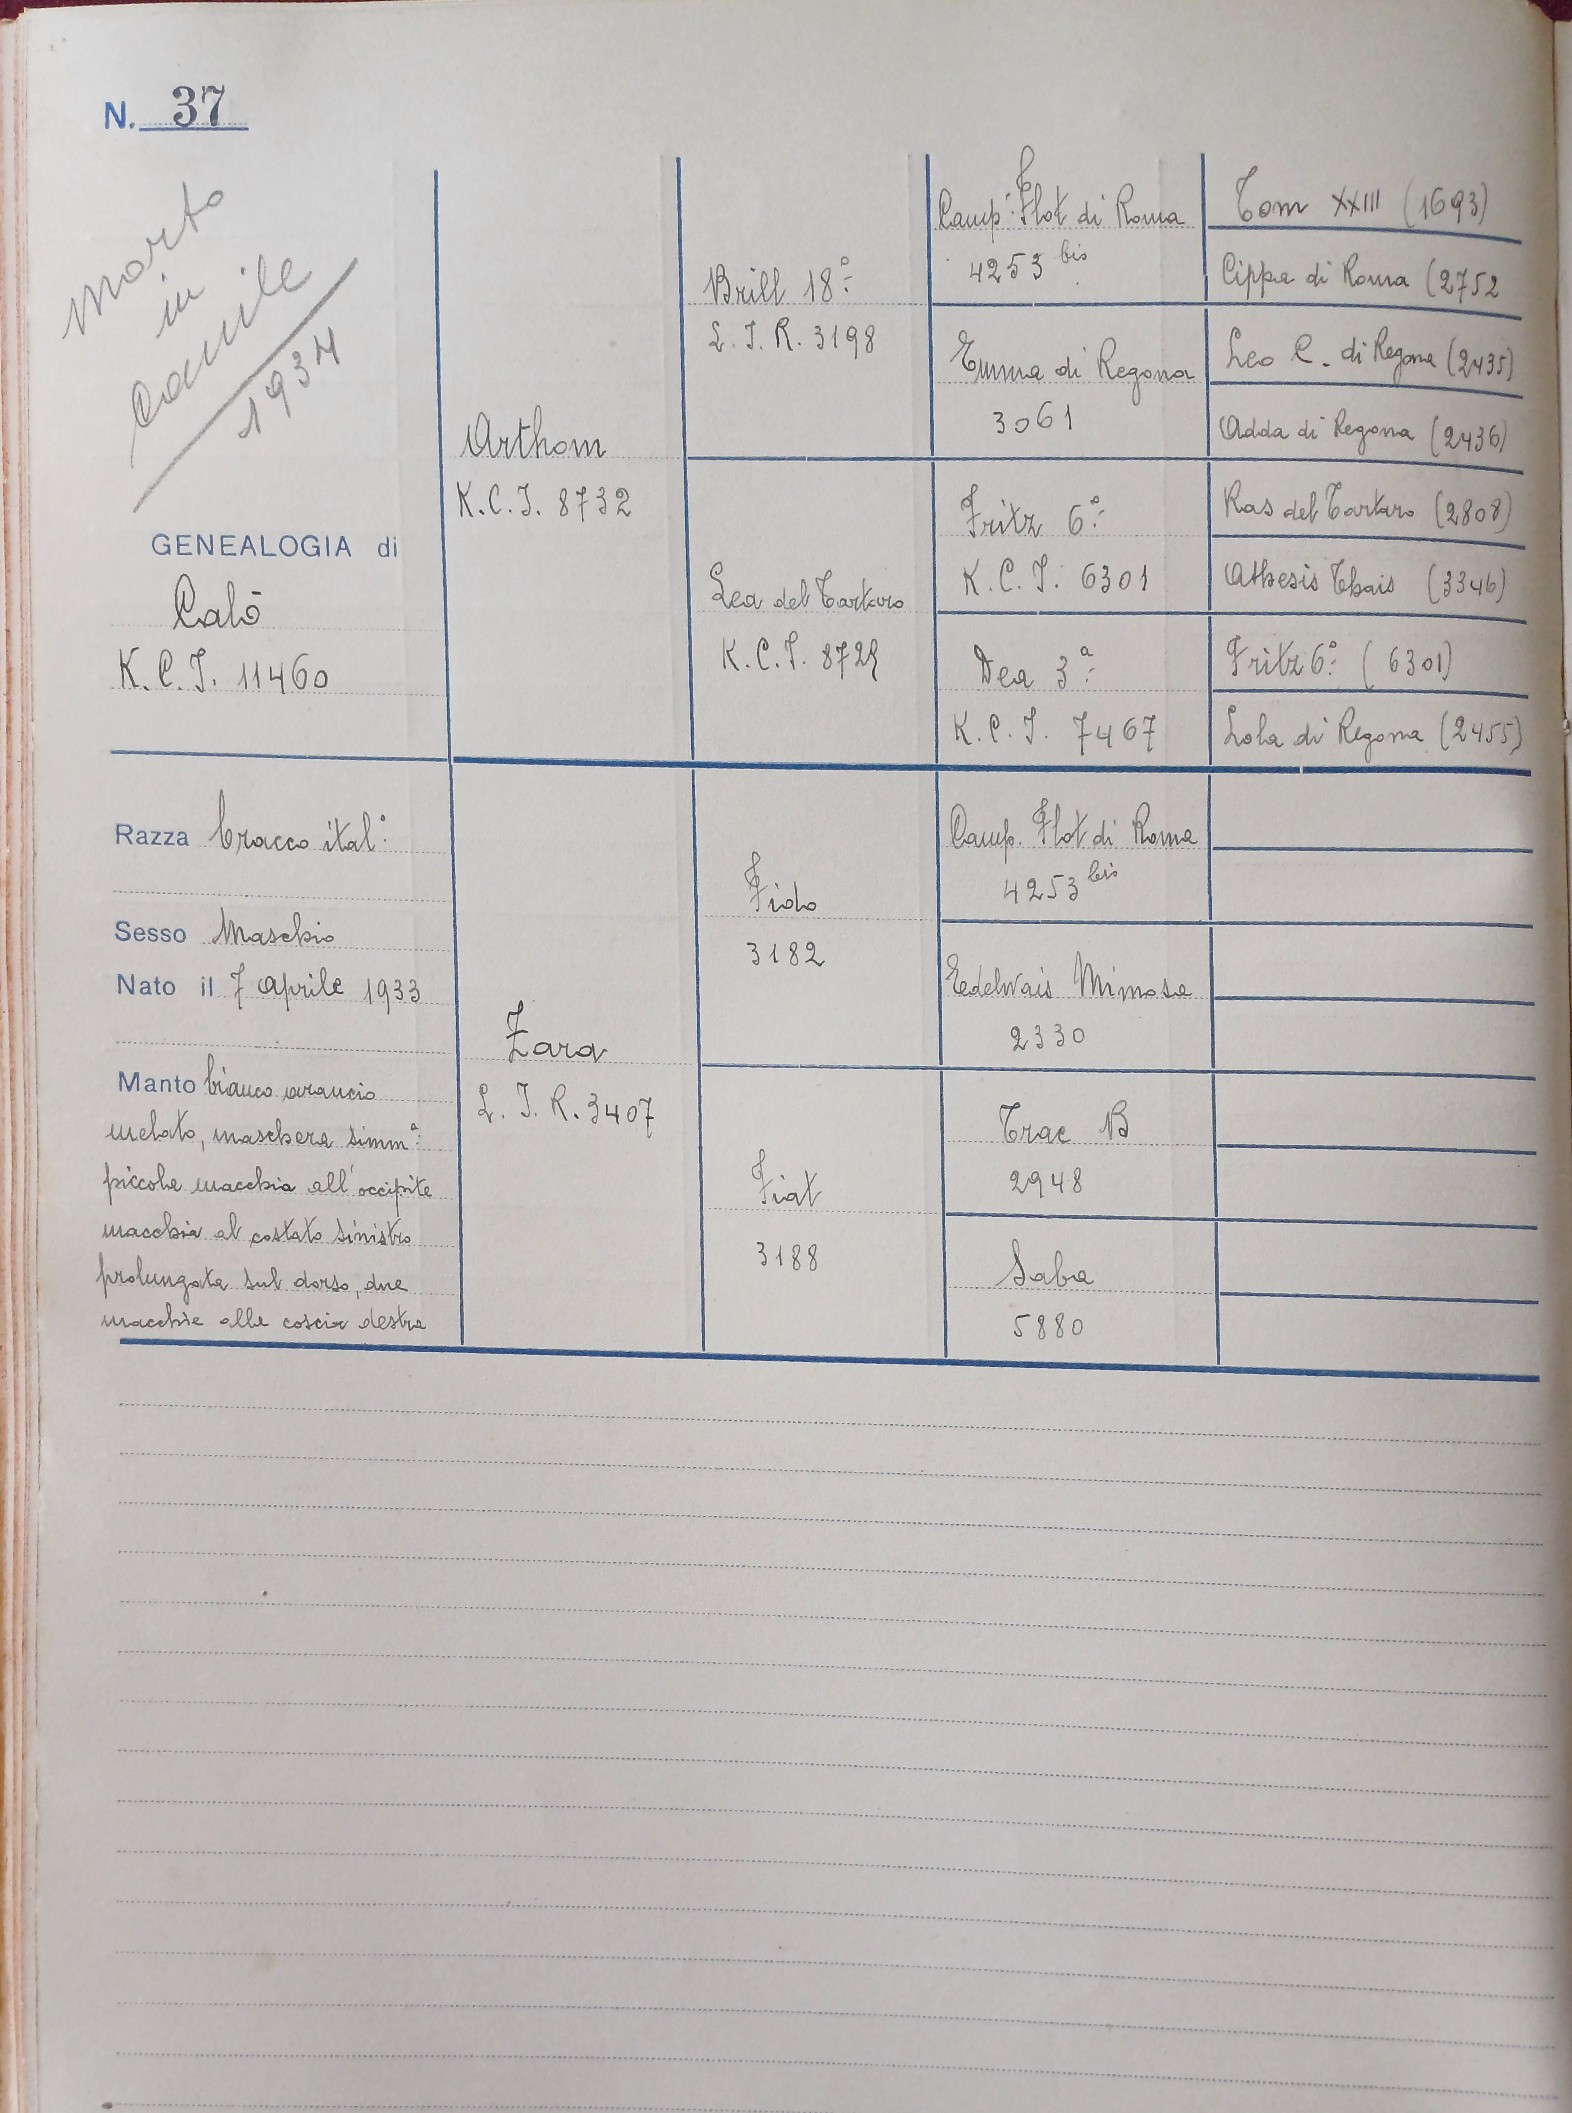 N. 37
morto
in
canile
1934
GENEALOGIA di
Calò
K.C.I. 11460
Razza bracco ital.º
Sesso Maschio
Nato il 7 aprile 1933
Manto bianco arancio
melato, maschera simm.ª
piccola macchia all'occipite
macchia al costato sinistro
prolungata sul dorso, due
macchie alla coscia destra
Arthom
K.C.I. 8732
Zara
L.I.R. 3407
Brill 18º
L.I.R. 3198
Lea del Tartaro
K.C.I. 8729
Fido
3182
Fiat
3188
Camp. Flot di Roma
4253 bis
Emma di Regona
3061
Fritz 6º
K.C.I. 6301
Dea 3ª
K.C.I. 7467
Camp. Flot di Roma
4253 bis
Edelwais Mimosa
2330
Trac B
2948
Saba
5880
Tom XXIII (1693)
Cippa di Roma (2752
Leo C. di Regona (2435)
Adda di Regona (2436)
Ras del Tartaro (2808)
Athesis Thais (3346)
Fritz 6º (6301)
Lola di Regona (2455)